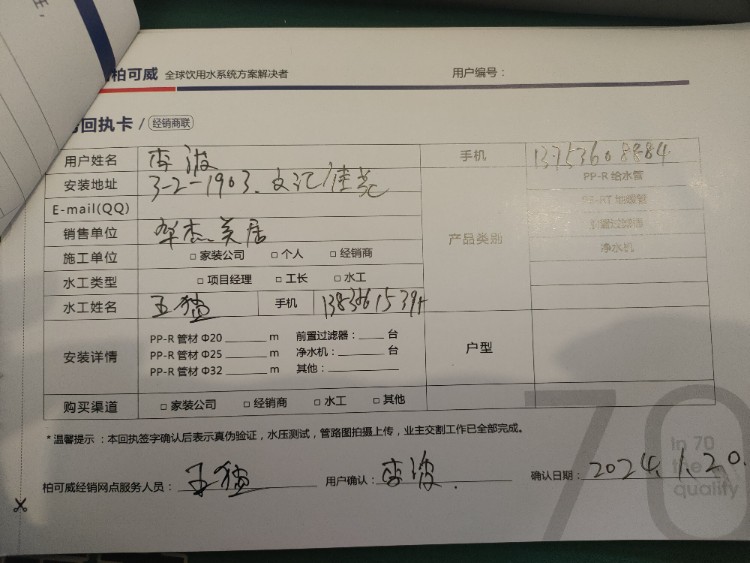 柏可威 全球饮用水系统方案解决者 用户编号：
回执卡 / 经销商联
用户姓名 李波 手机 13753608884
安装地址 3-2-1903.文汇佳苑 PP-R 给水管
E-mail(QQ) PE-RT 地暖管
销售单位 华杰美居 产品类别 前置过滤器
施工单位 □ 家装公司 □ 个人 □ 经销商 净水机
水工类型 □ 项目经理 □ 工长 □ 水工
水工姓名 王猛 手机
安装详情 PP-R 管材 Φ20 ______ m 前置过滤器：____ 台 户型
PP-R 管材 Φ25 ______ m 净水机：______ 台
PP-R 管材 Φ32 ______ m 其他：______
购买渠道 □ 家装公司 □ 经销商 □ 水工 □ 其他
*温馨提示：本回执签字确认后表示真伪验证，水压测试，管路图拍摄上传，业主交割工作已全部完成。
70
In 70
the
quality
柏可威经销网点服务人员：王猛 用户确认：李波. 确认日期：2024.1.20.